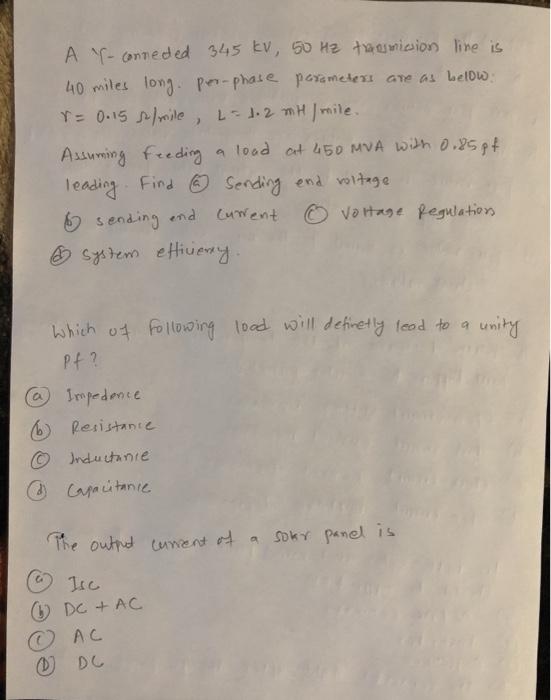 A Y-conneded 345 kV, 50 Hz trasmision line is
40 miles long. per-phase parameters are as below:
r = 0.15 Ω/mile, L = 1.2 mH/mile.
Assuming feeding a load at 450 MVA with 0.85 pf
leading. Find (a) Sending end voltage
(b) sending end current (c) Voltage Regulation
(d) system efficiency.
Which of following load will definetly lead to a unity
pf?
(a) Impedence
(b) Resistance
(c) Inductance
(d) Capacitance
The output current of a solar panel is
(a) Isc
(b) DC + AC
(c) AC
(D) DC